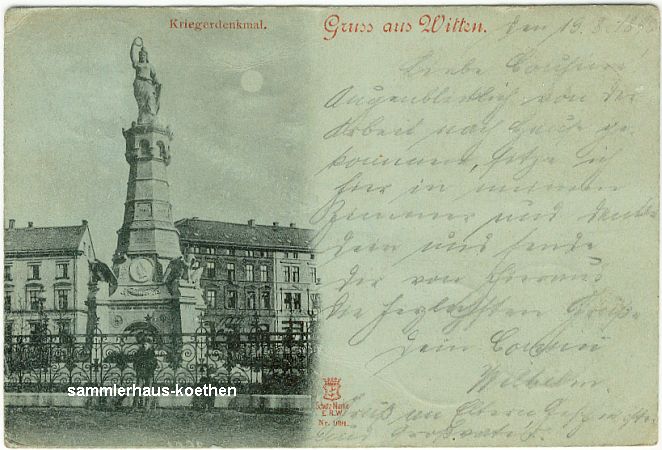 Kriegerdenkmal.
Gruss aus Witten.
den 19.8.18
Liebe Cousine
Augenblicklich von der
Arbeit nach Hause ge-
kommen, sitze ich
hier in meinem
Zimmer und
und sende
dir von hieraus
die herzlichsten Grüße
Dein Cousin
Wilhelm.
Gruß an Eltern
und Großvater
sammlerhaus-koethen
Schutz-Marke
E.R.W.
Nr.